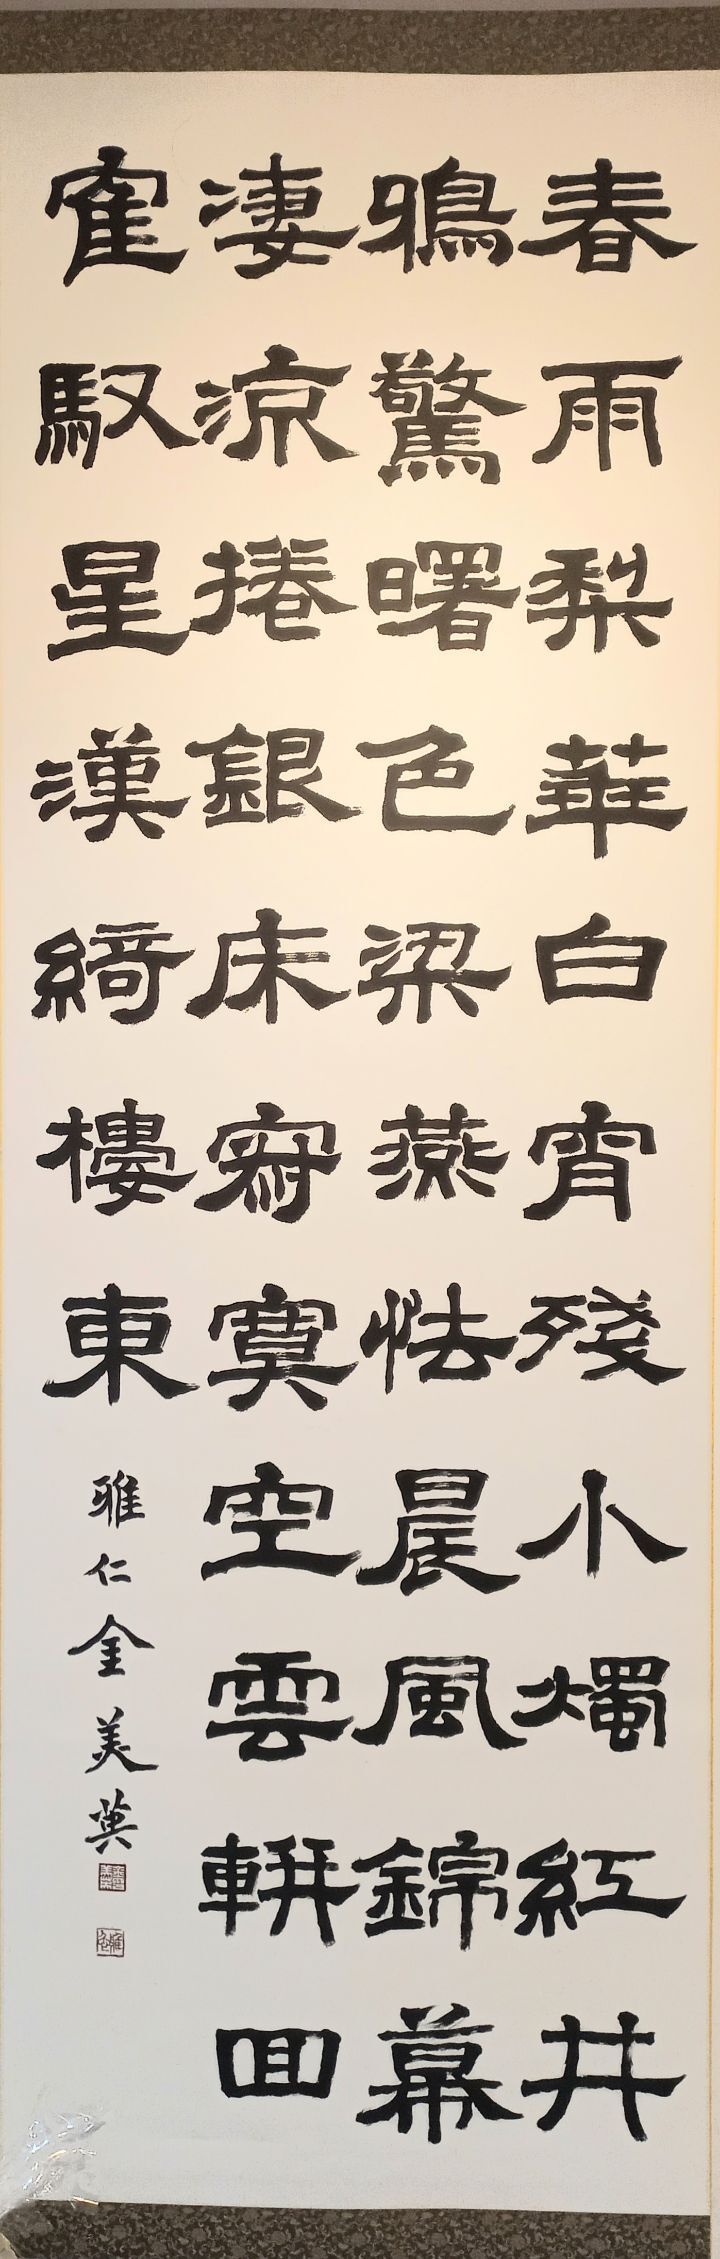 春雨梨華白宵殘小燭紅井
鴉驚曙色梁燕怯晨風錦幕
凄凉捲銀床寂寞空雲輧回
寉馭星漢綺樓東
雅仁 金美英